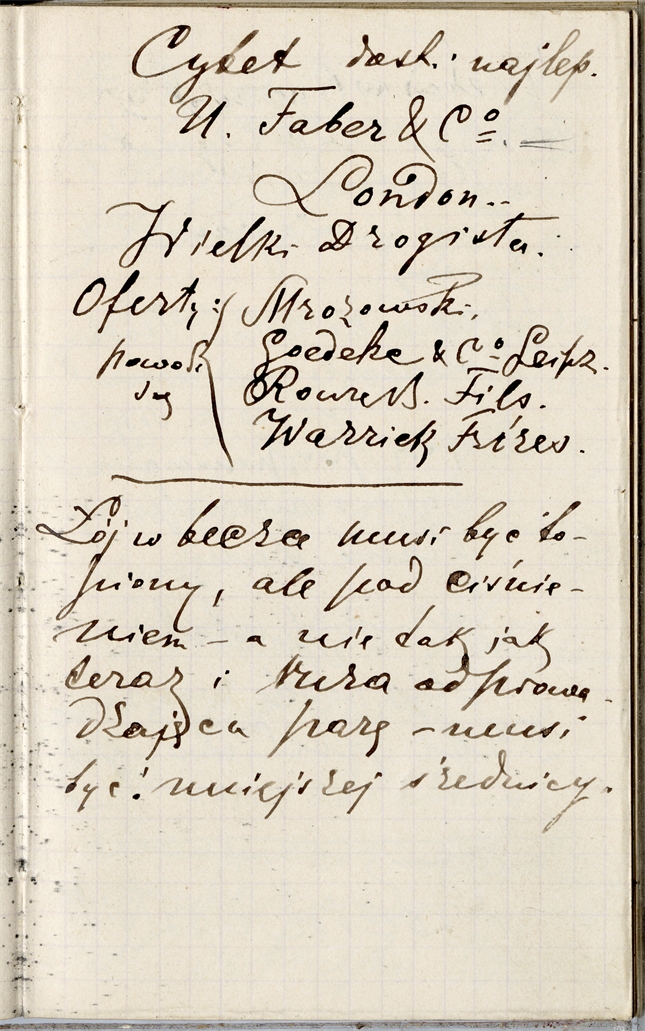 Cybet dost. najlep.
U. Faber & Co.
London..
Wielki Drogista.
Oferty: Mrozowski,
Goedeke & Co Leipz.
Fils.
Warrick Fréres.
Łój w beczce musi być to-
piony, ale pod ciśnie-
niem – a nie tak jak
teraz i rura odprowa-
dzająca parę – musi
być mniejszej średnicy.